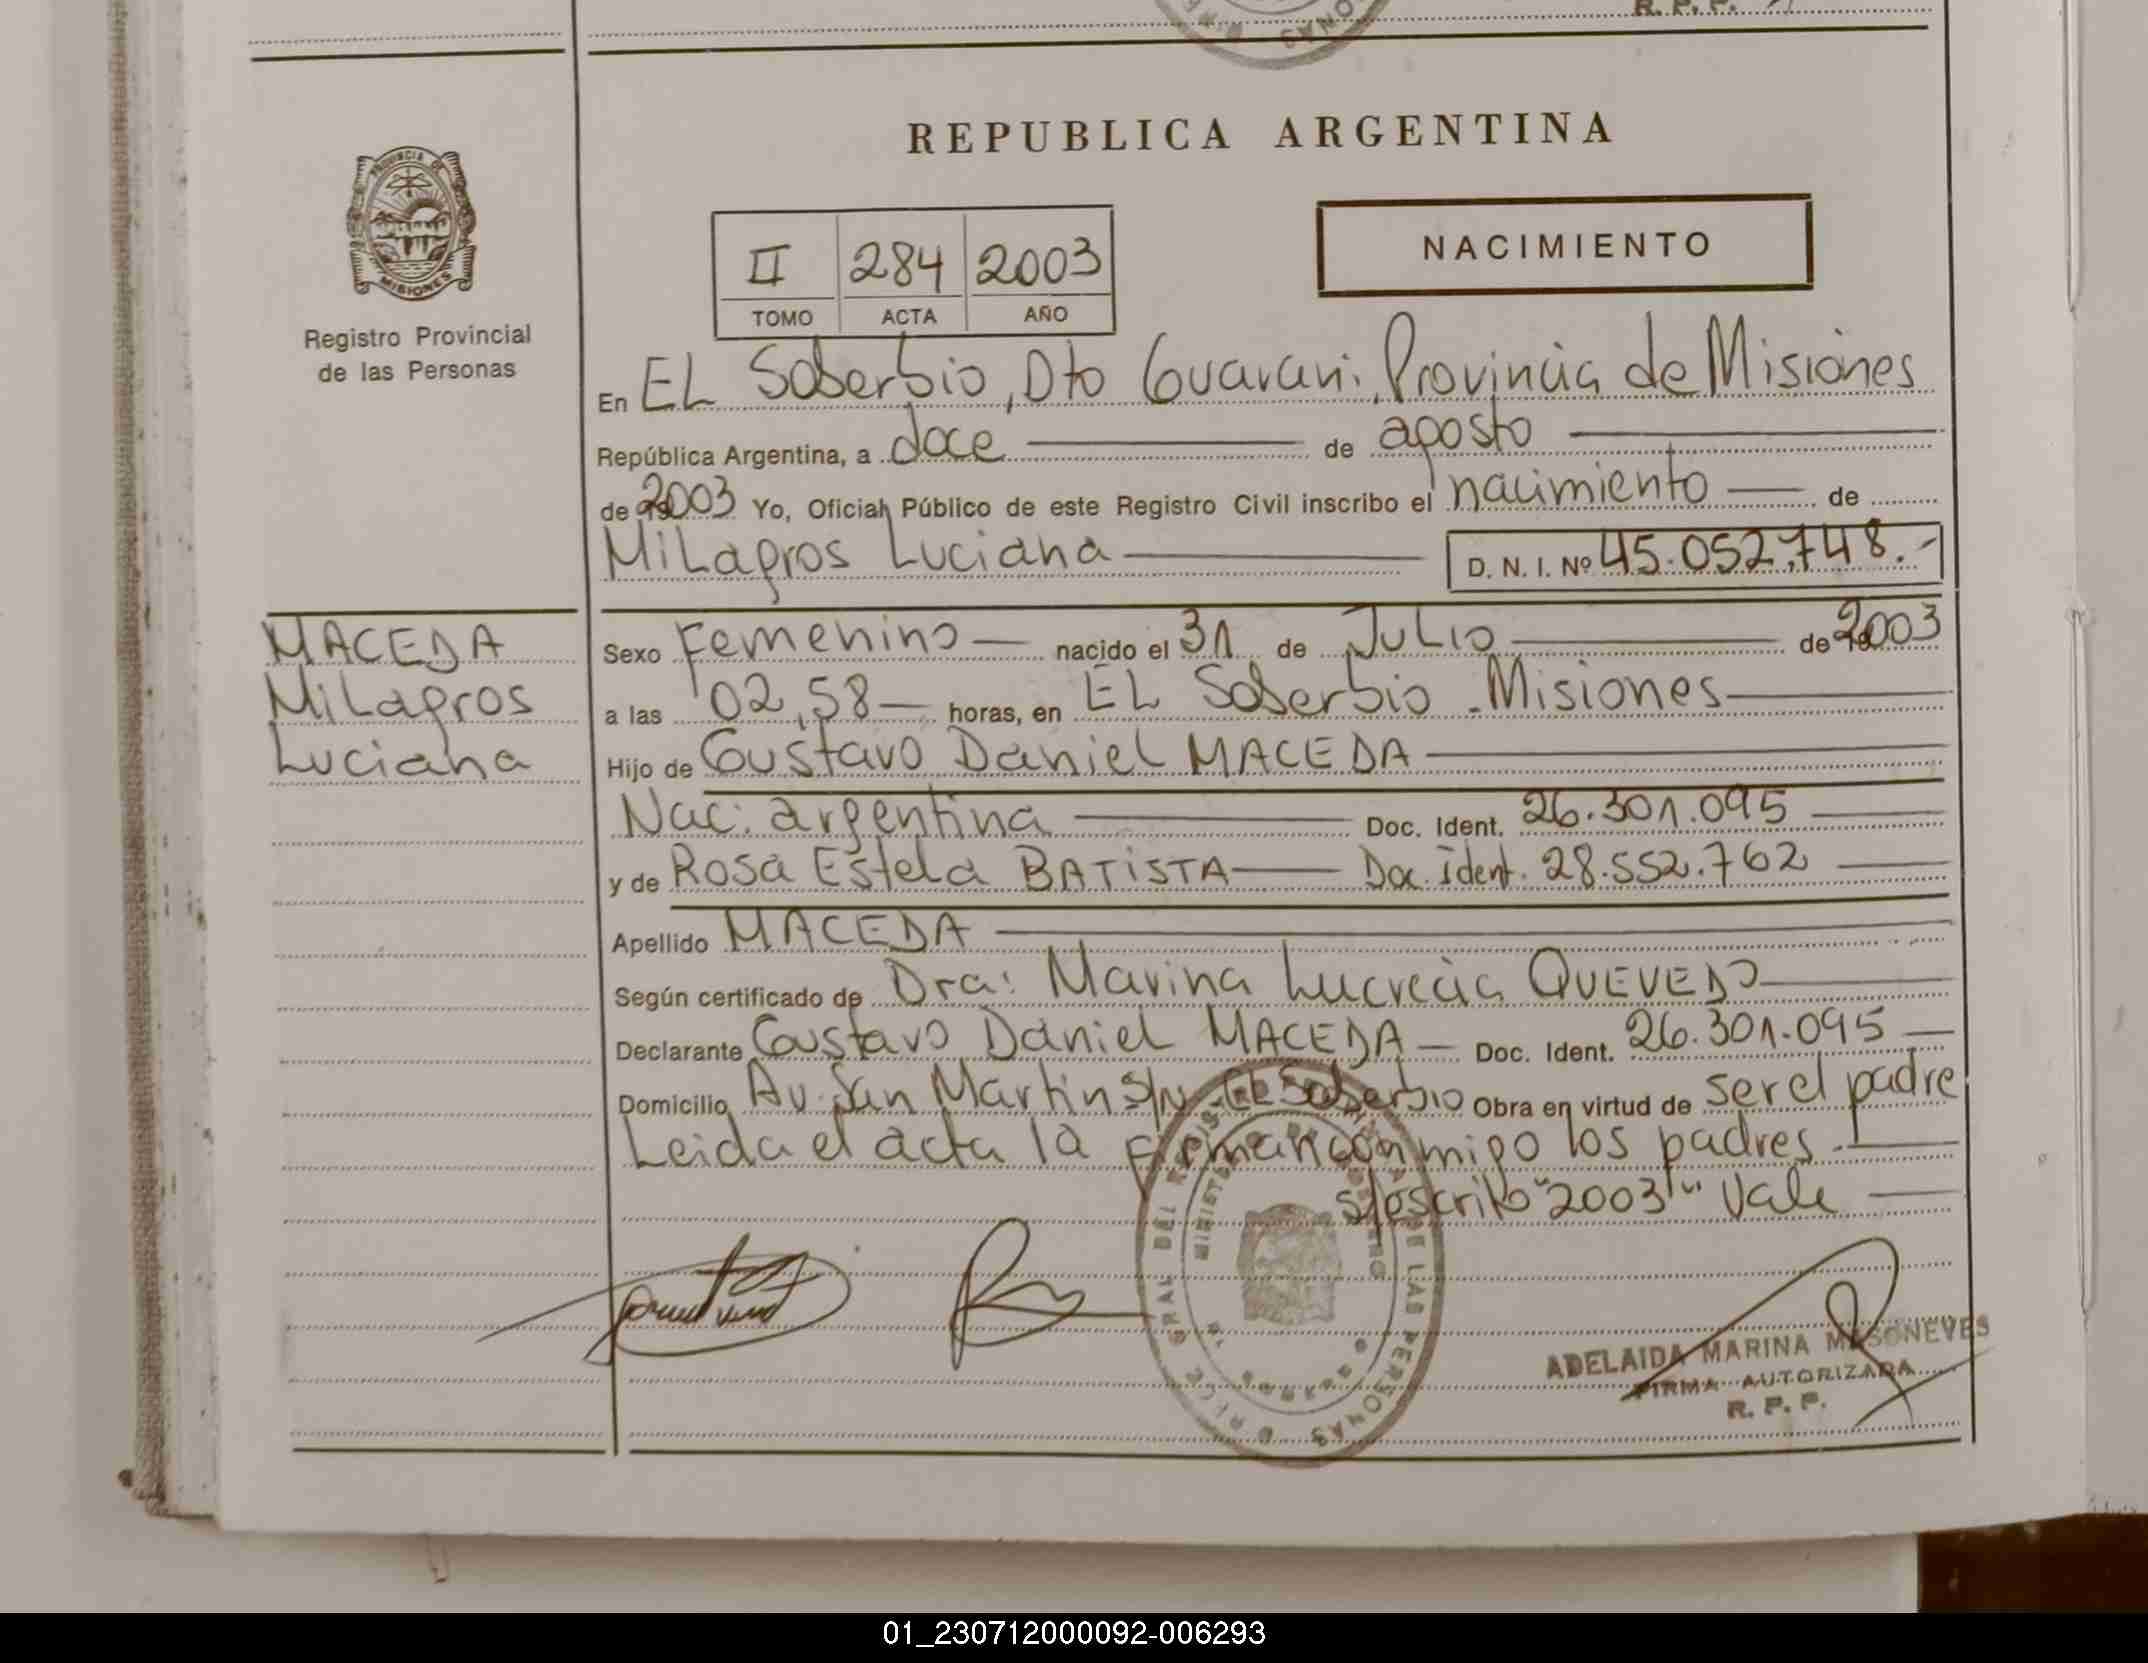 R. P. P.
REPUBLICA ARGENTINA
PROVINCIA DE
MISIONES
Registro Provincial
de las Personas
II 284 2003
TOMO ACTA AÑO
NACIMIENTO
En EL Soberbio, Dto Guarani. Provincia de Misiones
República Argentina, a doce de agosto
de 2003 Yo, Oficial Público de este Registro Civil inscribo el nacimiento de
Milagros Luciana D. N. I. Nº 45.052.748.-
MACEDA
Milagros
Luciana
Sexo Femenino nacido el 31 de Julio de 2003
a las 02,58 horas, en EL Soberbio - Misiones
Hijo de Gustavo Daniel MACEDA
Nac: argentina Doc. Ident. 26.301.095
y de Rosa Estela BATISTA Doc. ident. 28.552.762
Apellido MACEDA
Según certificado de Dra: Marina Lucrecia QUEVEDO
Declarante Gustavo Daniel MACEDA Doc. Ident. 26.301.095
Domicilio Av. San Martin S/N - EL Soberbio Obra en virtud de ser el padre
Leida el acta la Firman conmigo los padres.
s/escrito "2003" Vale
ADELAIDA MARINA MASONEVES
FIRMA AUTORIZADA
R. P. P.
01_230712000092-006293